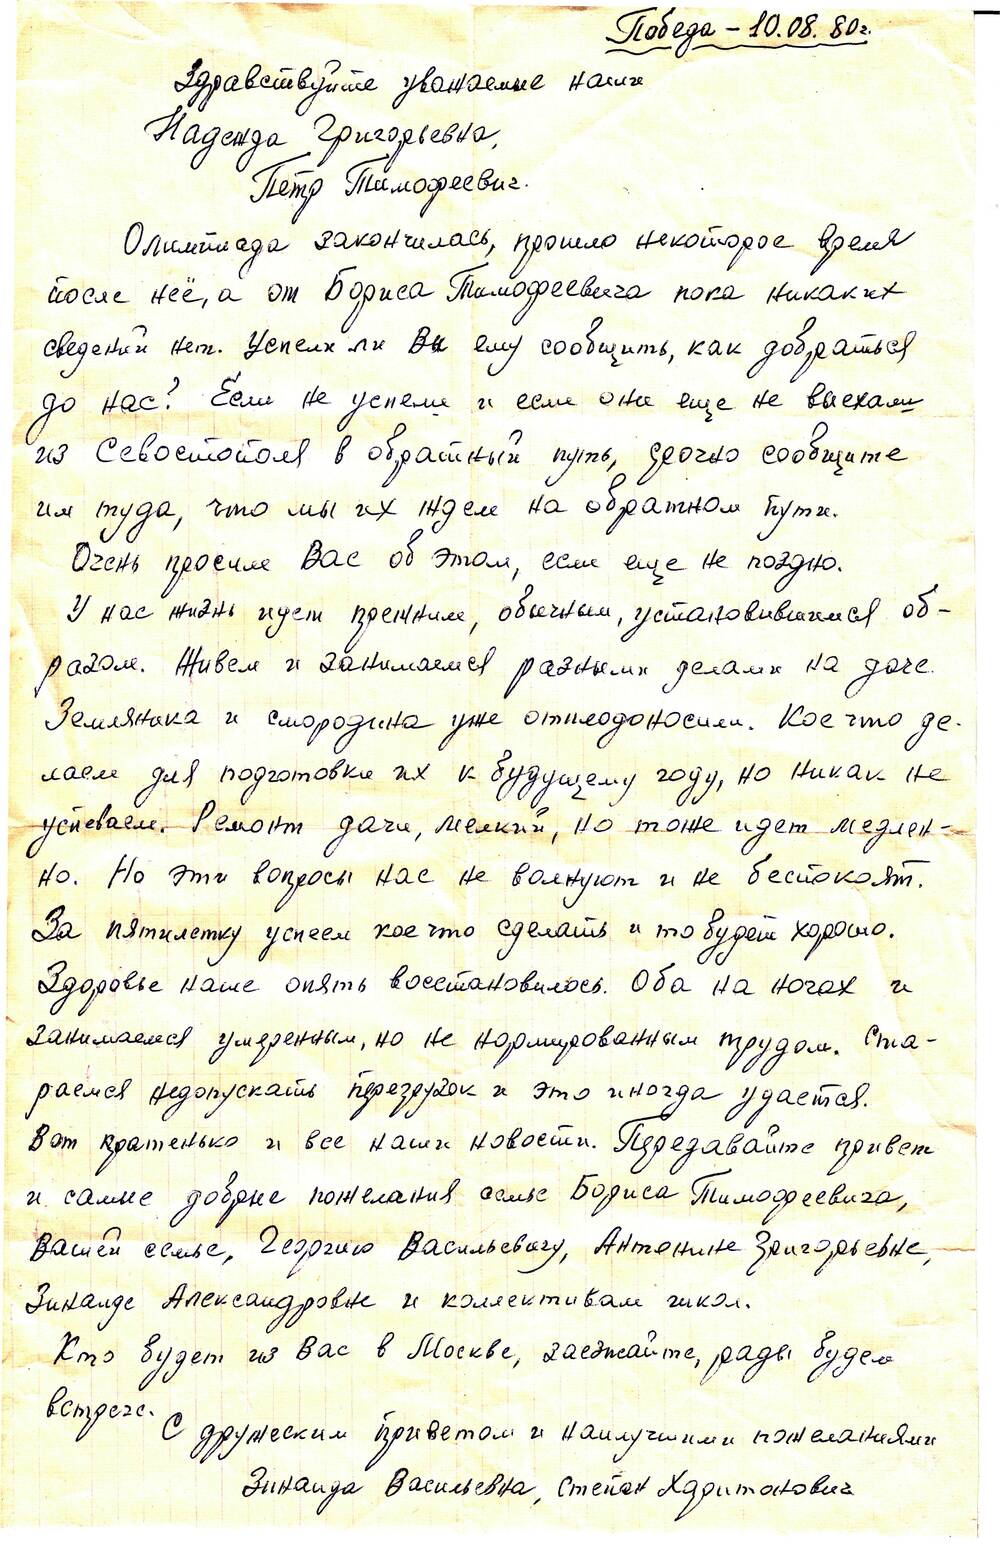 Победа – 10.08.80г.
Здравствуйте уважаемые наши
Надежда Григорьевна,
Пётр Тимофеевич.
Олимпиада закончилась, прошло некоторое время
после неё, а от Бориса Тимофеевича пока никаких
сведений нет. Успели ли Вы ему сообщить, как добраться
до нас? Если не успели и если они еще не выехали
из Севостополя в обратный путь, срочно сообщите
им туда, что мы их ждем на обратном пути.
Очень просим Вас об этом, если еще не поздно.
У нас жизнь идет прежним, обычным, установившимся об-
разом. Живем и занимаемся разными делами на даче.
Земляника и смородина уже отплодоносили. Кое что де-
лаем для подготовки их к будущему году, но никак не
успеваем. Ремонт дачи, мелкий, но тоже идет медлен-
но. Но эти вопросы нас не волнуют и не беспокоят.
За пятилетку успеем кое что сделать и то будет хорошо.
Здоровье наше опять восстановилось. Оба на ногах и
занимаемся умеренным, но не нормированным трудом. Ста-
раемся недопускать перегрузок и это иногда удается.
Вот кратенько и все наши новости. Передавайте привет
и самые добрые пожелания семье Бориса Тимофеевича,
Вашей семье, Георгию Васильевичу, Антонине Григорьевне,
Зинаиде Александровне и коллективам школ.
Кто будет из Вас в Москве, заезжайте, рады будем
встрече.
С дружеским приветом и наилучшими пожеланиями
Зинаида Васильевна, Степан Харитонович